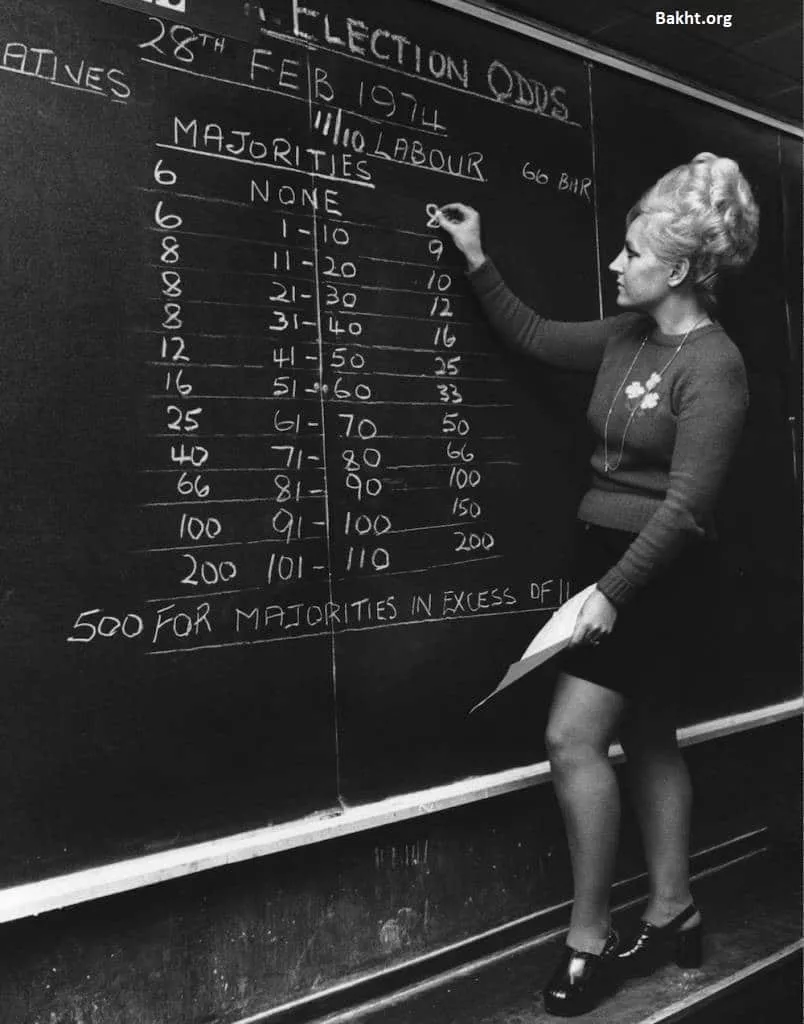 Bakht.org
ELECTION ODDS
28TH FEB 1974
ATIVES
11/10 LABOUR 66
MAJORITIES
6 NONE 8
6 1-10 9
8 11-20 10
8 21-30 12
8 31-40 16
12 41-50 25
16 51-60 33
25 61-70 50
40 71-80 66
66 81-90 100
100 91-100 150
200 101-110 200
500 FOR MAJORITIES IN EXCESS OF 11